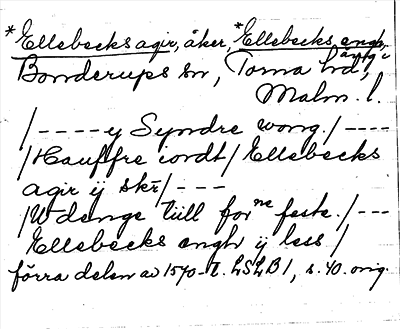 *Ellebecks agir, åker, *Ellebecks engh, äng i
Bonderups sn, Torna hd,
Malm. l.
/----y Syndre wong./----
/Hauffre iordt/Ellebecks
agir ij skr̄/---
/Udenge till forne feste./---
Ellebecks engh ij less/
förra delen av 1570-t. LSLB1, s. 40. orig.